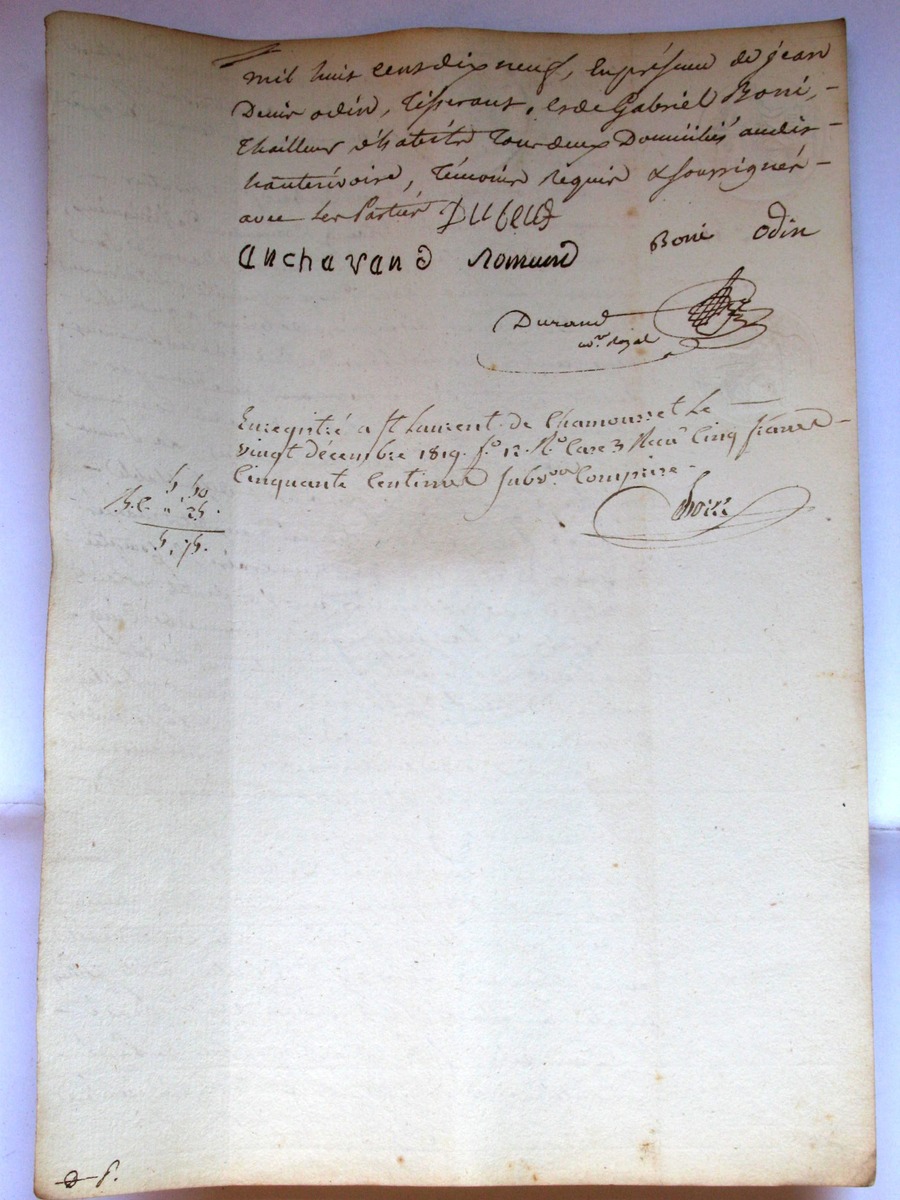 mil huit cent dix neuf, en présence de jean
Denis odin, Tisserant, et de Gabriel Boné, -
thailleur d'habits tous deux Domiciliés audit -
hauterivoire, Témoins requis & soussignés -
avec les Parties DUbeuf
anchavand Romand Boné Odin
Durand
no.re royal
Enregistré a St Laurent de Chamousset Le
vingt décembre 1819. f.o 12. R.o Case 3 Recu Cinq francs -
Cinquante Centimes Subv.on Comprise -
5 50
25.
5, 75.